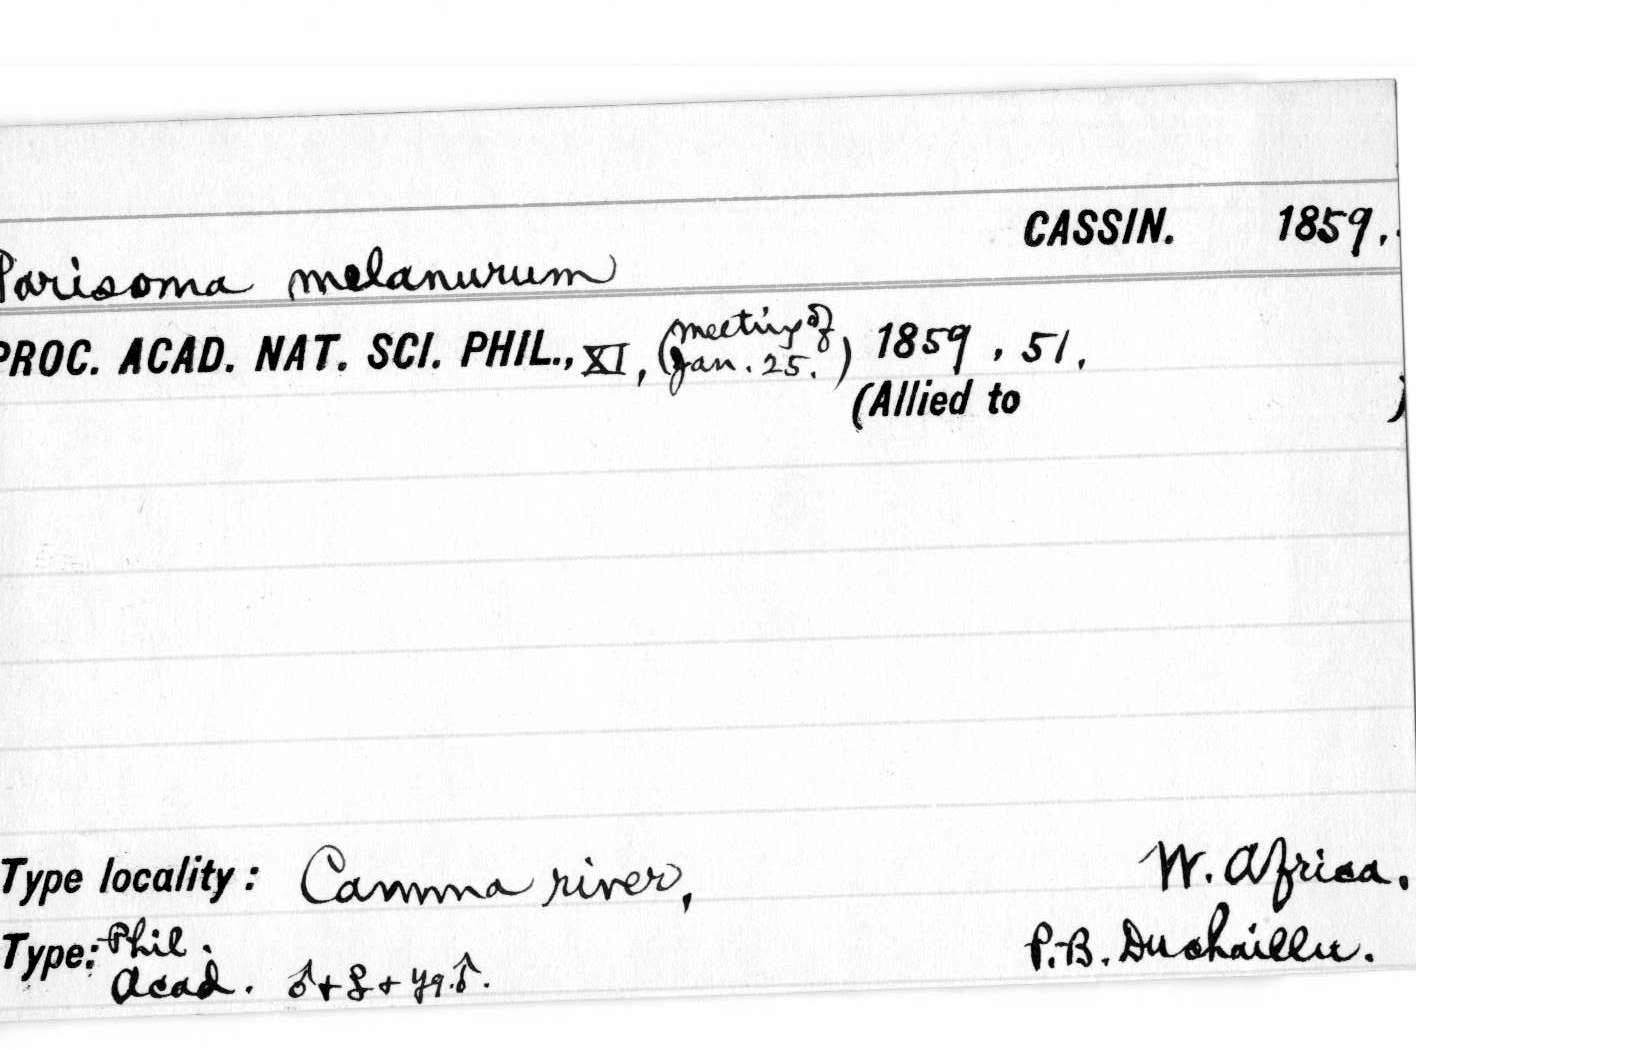 CASSIN. 1859.
Parisoma melanurum
PROC. ACAD. NAT. SCI. PHIL., XI, (meeting of Jan. 25.) 1859, 51.
(Allied to )
Type locality: Camma river, W. Africa.
Type: Phil. Acad. ♂+♀+yg.♂. P.B. Duchaillu.